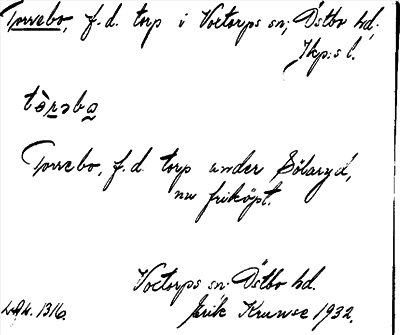 Torrebo, f.d. torp i Voxtorps sn; Östbo hd;
Jkp:s l.
tòrəba
Torrebo, f.d. torp under Sölaryd,
nu friköpt.
Voxtorps sn Östbo hd.
Erik Kruuse 1932.